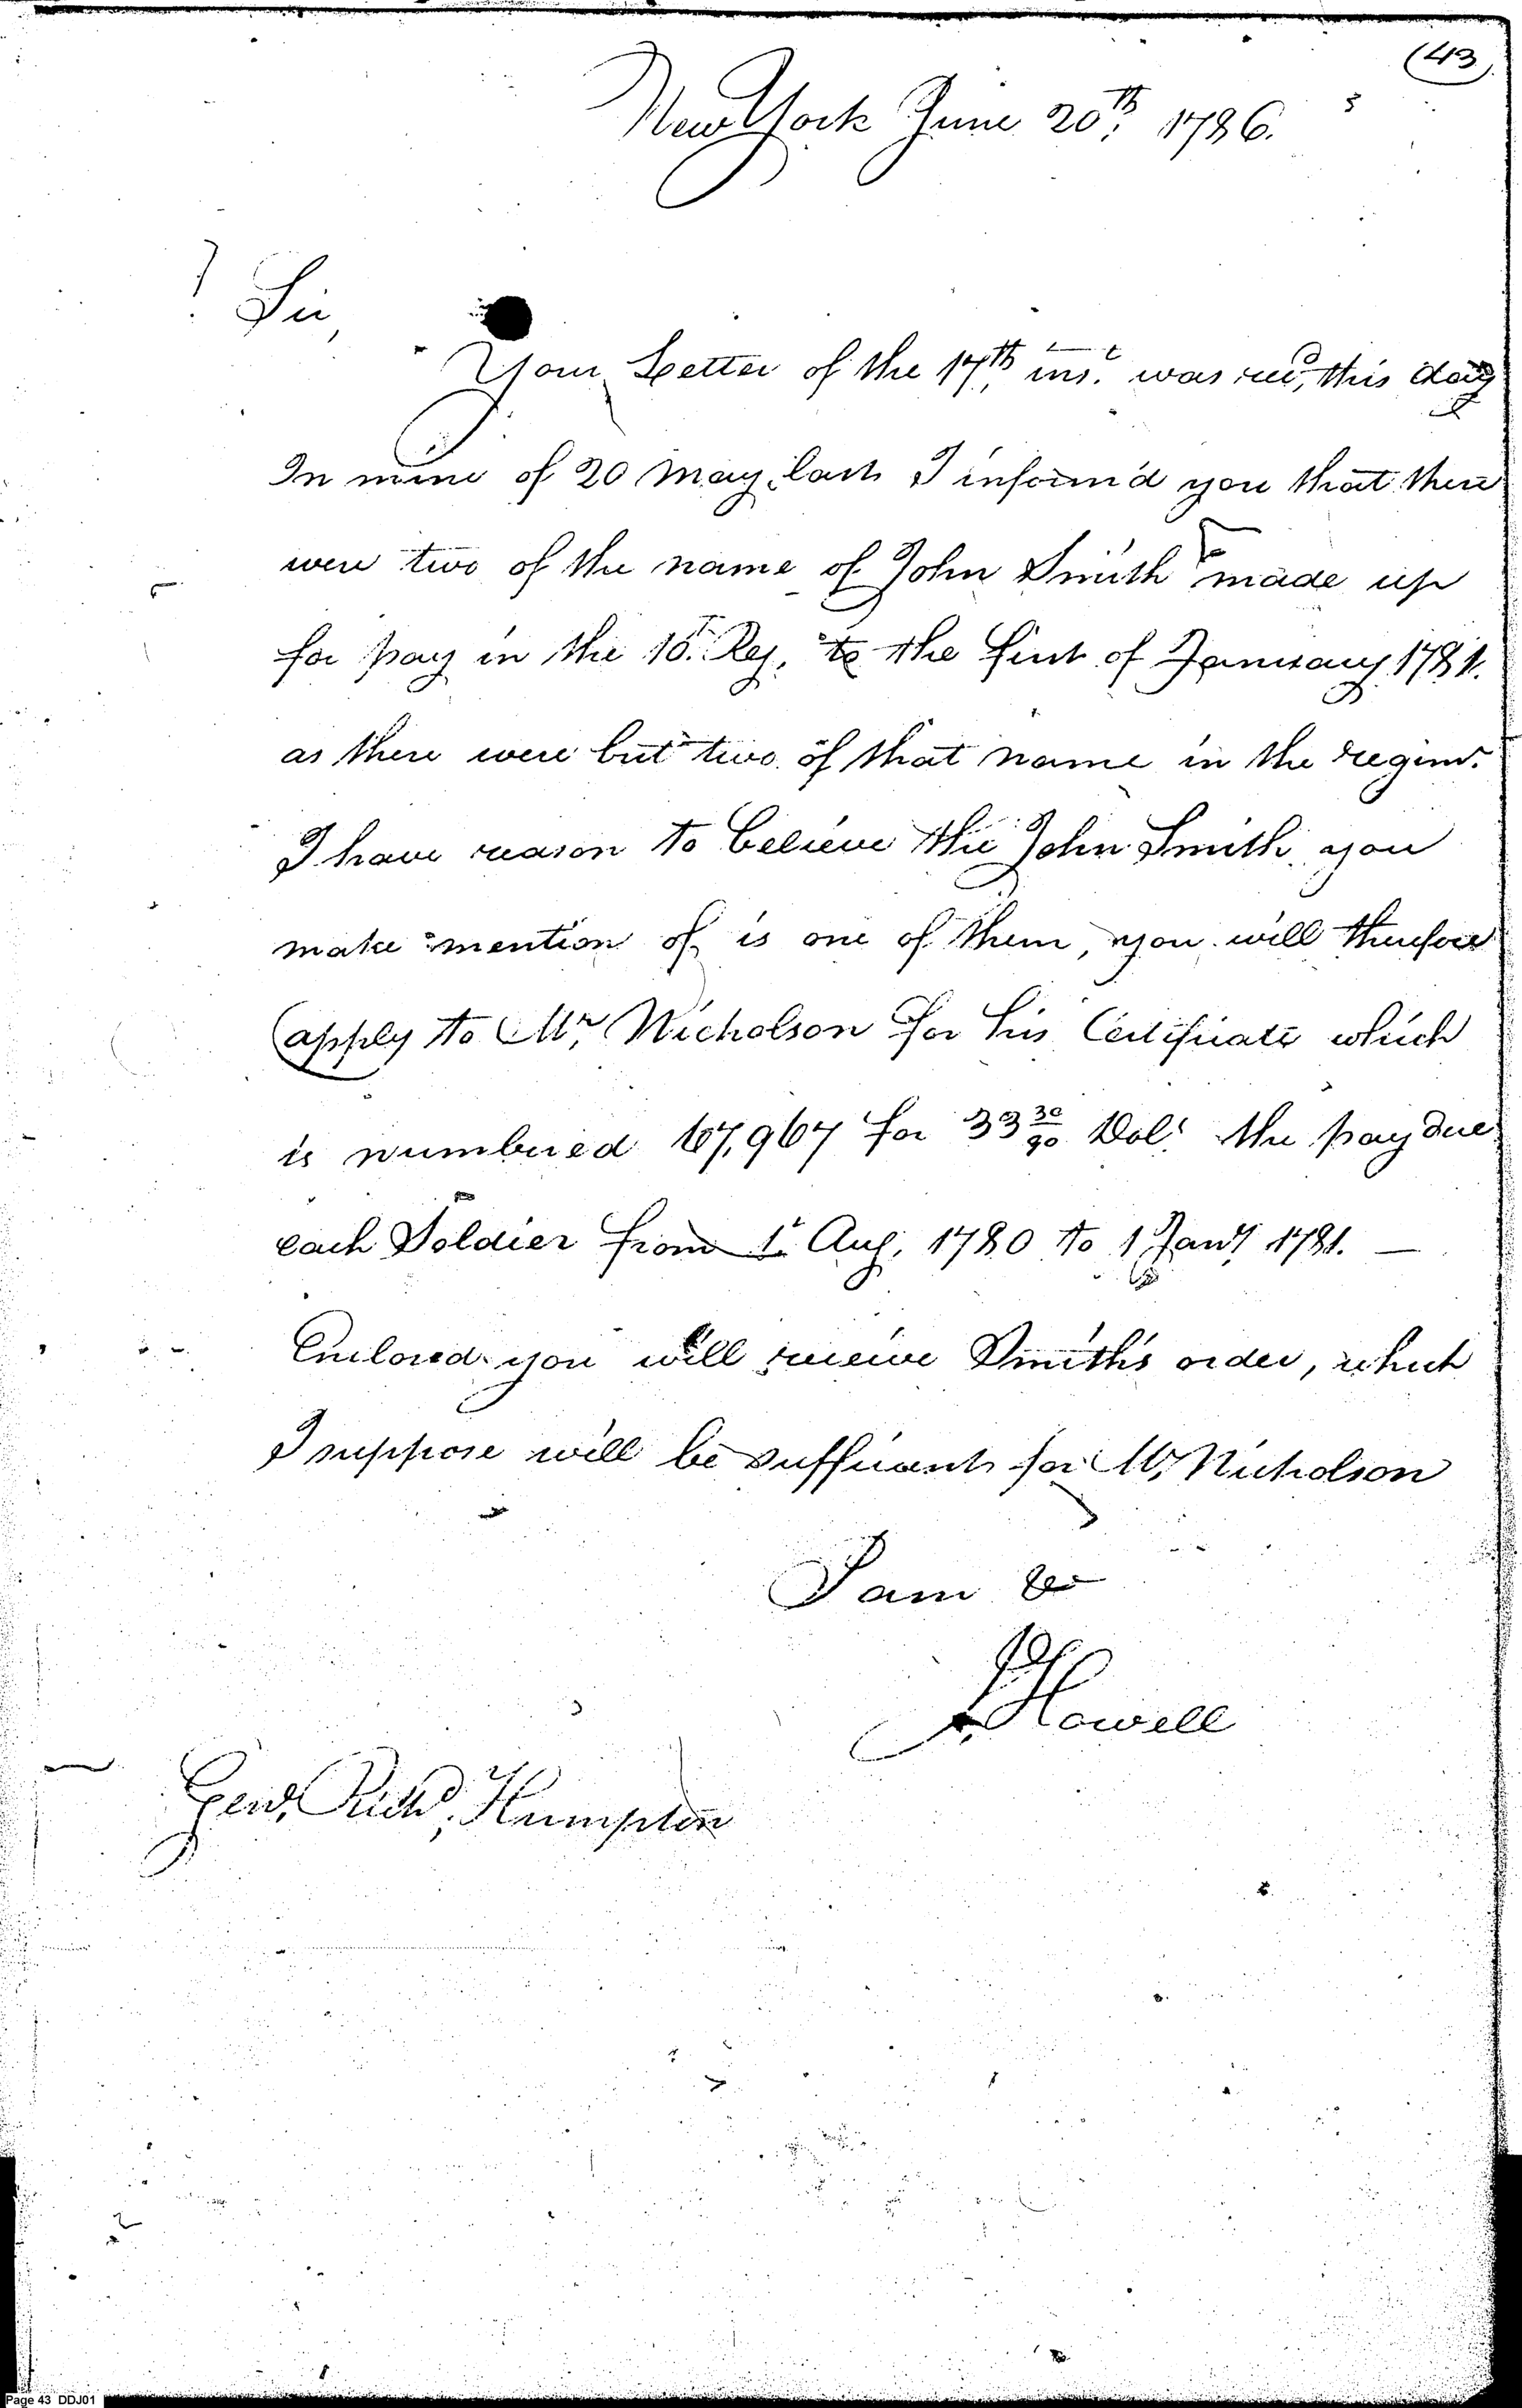 (43)
New York June 20th. 1786.
Sir,
Your Letter of the 17th, inst. was recd, this day
In mine of 20 May last I inform'd you that there
were two of the name of John Smith made up
for pay in the Reg. to the first of January 1781.
as there were but two of that name in the regimt.
I have reason to believe the John Smith you
make mention of is one of them, you will therefore
apply to Mr, Nicholson for his Certificate which
is numbered 67,967 for 33 30/90 Dols the pay due
each Soldier from 1t Aug, 1780 to 1 Jany 1781. —
Enclosed you will receive Smith's order, which
I suppose will be sufficient for Mr, Nicholson
I am &c
Howell
Genl, Richd, Humpton
Page 43 DDJ01